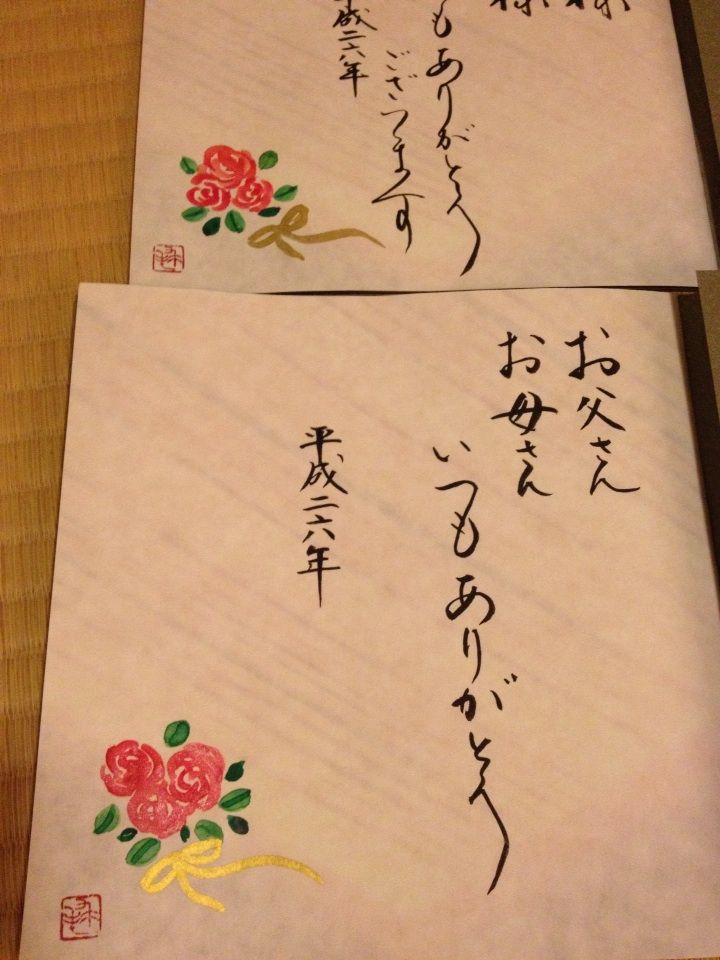 様
様
もありがとう
ございます
平成二六年
お父さん
お母さん
いつもありがとう
平成二六年